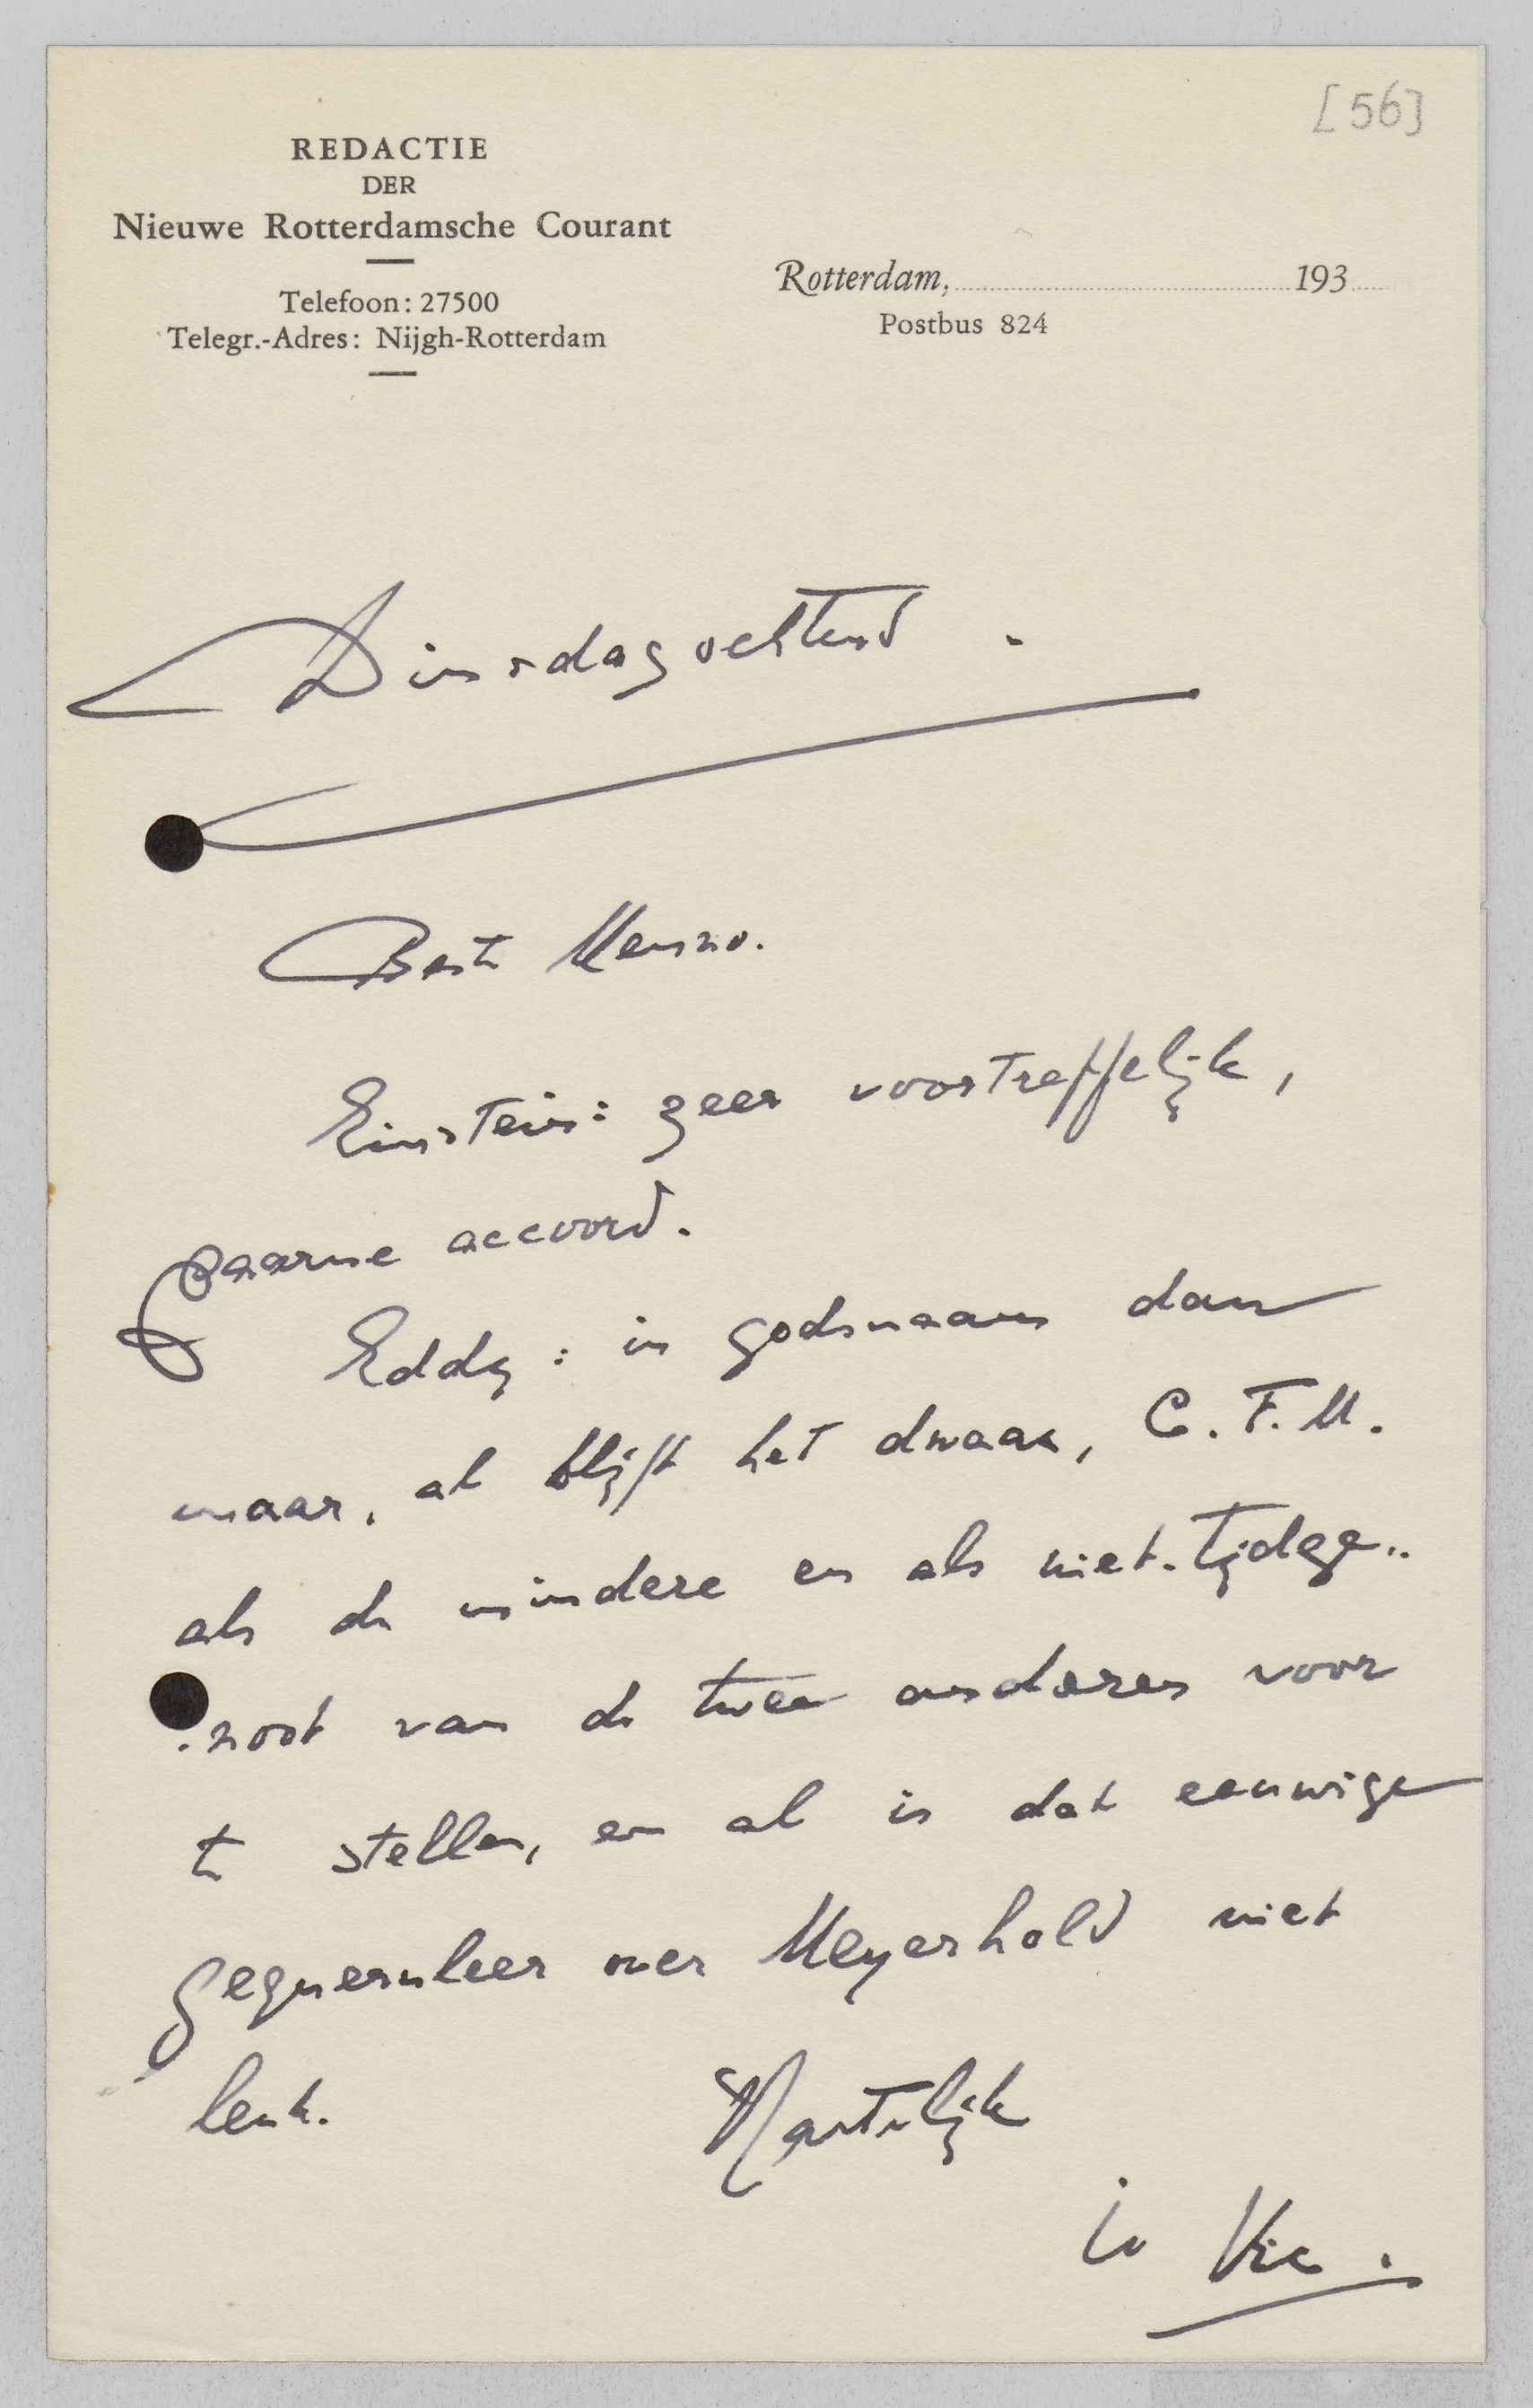 [56]
REDACTIE
DER
Nieuwe Rotterdamsche Courant
Telefoon: 27500
Telegr.-Adres: Nijgh-Rotterdam
Rotterdam, 193
Postbus 824
Dinsdagochtend.
Beste Menno.
Einstein: zeer voortreffelijk,
gaarne accoord.
Eddy: in godsnaam dan
maar, al blijft het dwaas, C.F.M.
als de mindere en als niet-tijdge-
-noot van de twee anderen voor
te stellen, en al is dat eeuwige
gequeruleer over Meyerhold niet
leuk. Hartelijk
Vic.